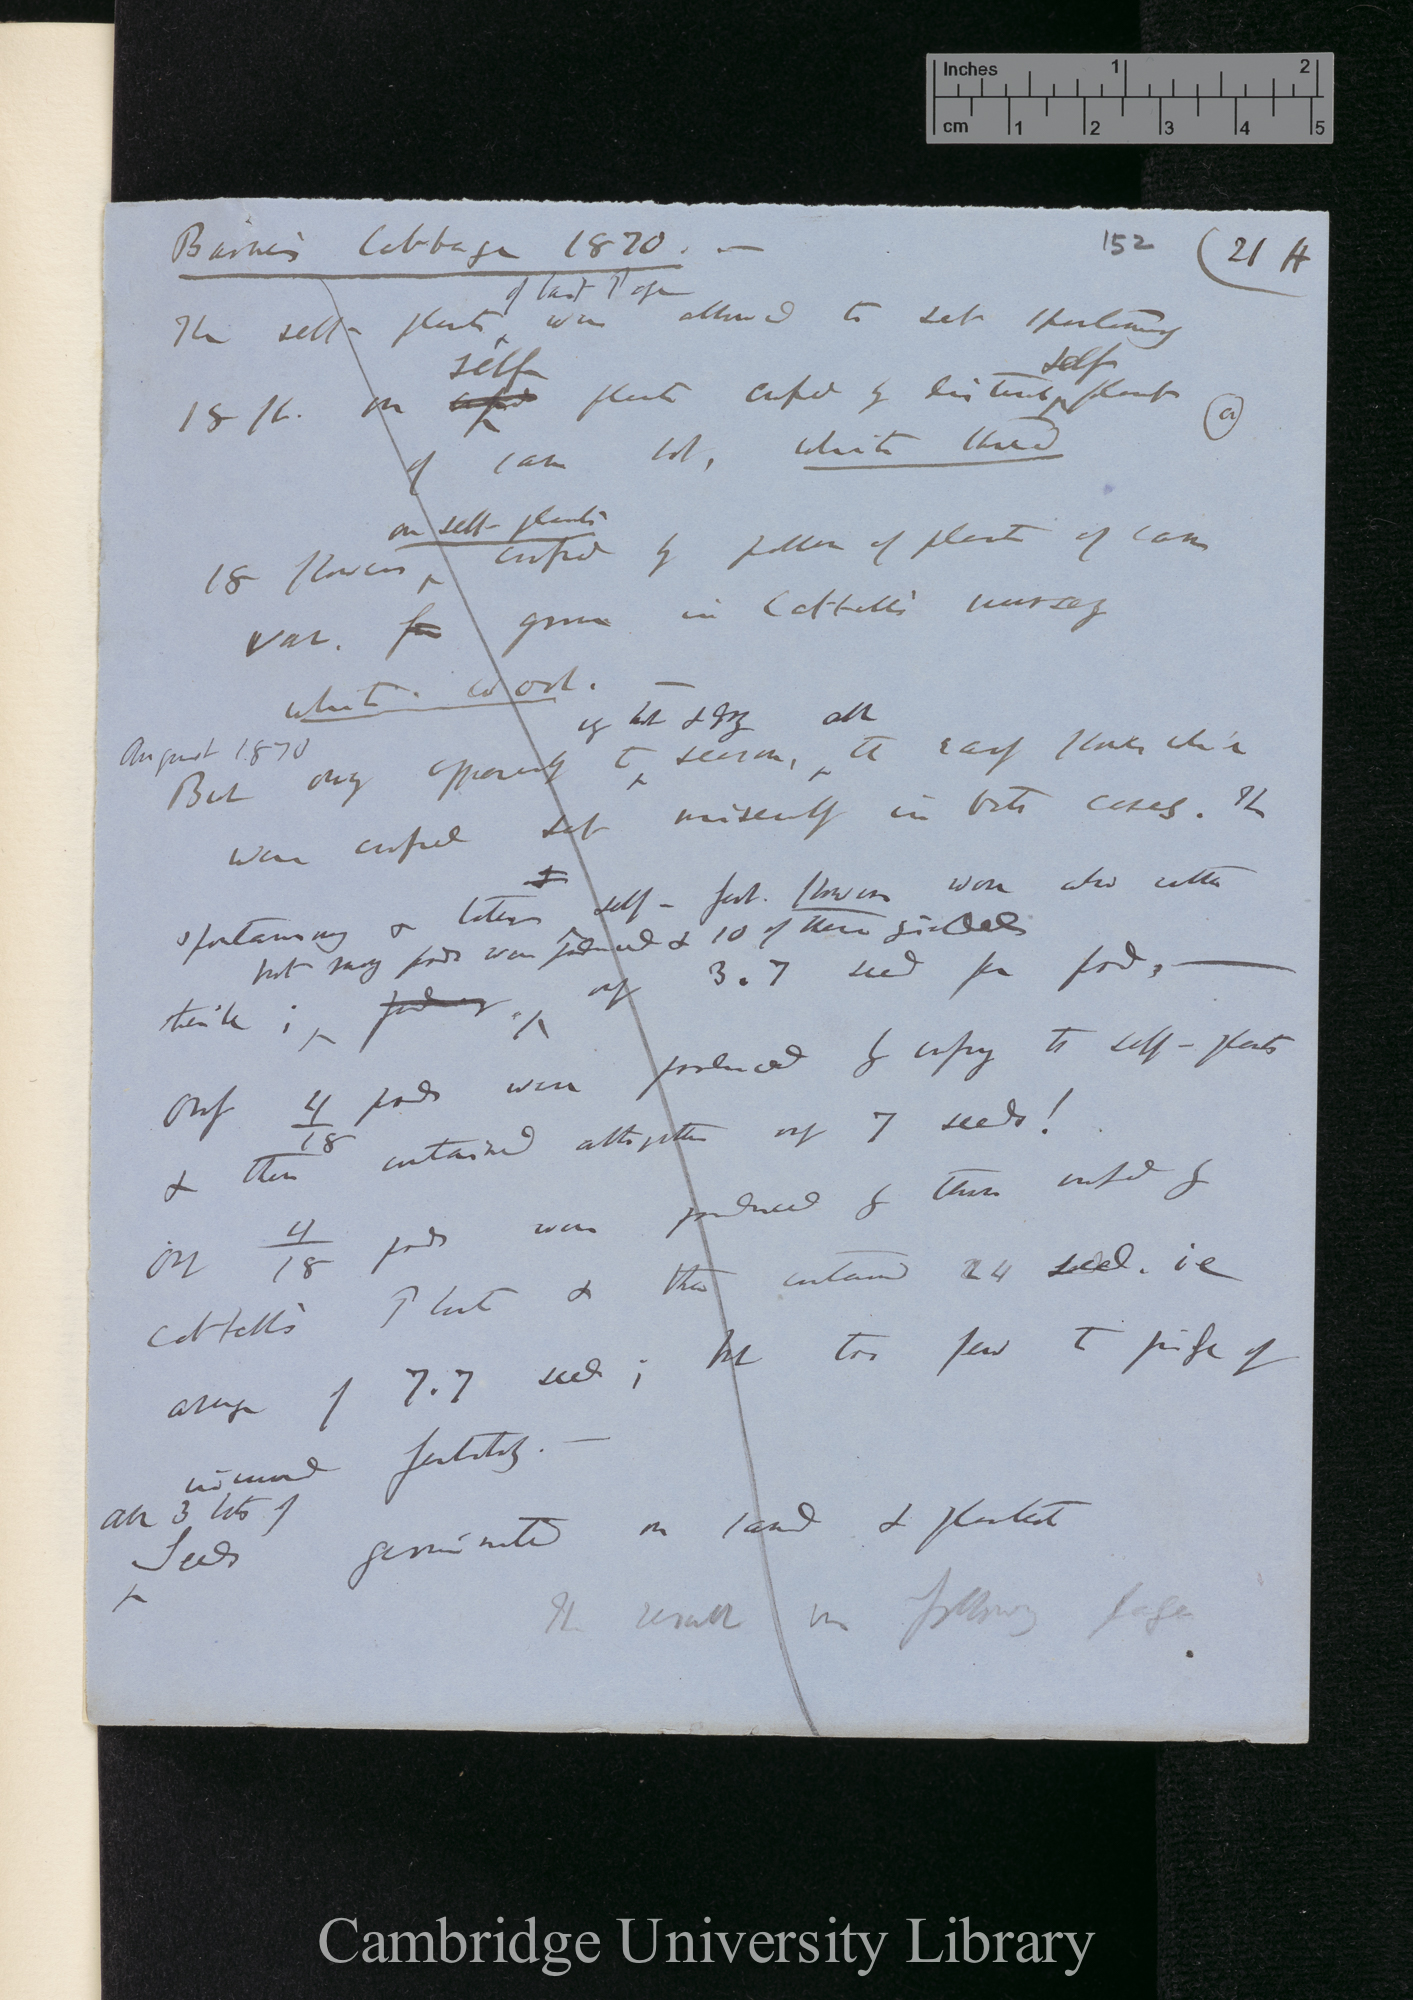 Inches 1 2
cm 1 2 3 4 5
Barnes Cabbage 1870. —
152 (21 A
of last Page
The self-plants were allowed to set spontaneously
self self
18 fl. on plants crossed by distinct plants (a)
of same lot, white thread
on self-plants
18 flowers crossed by pollen of plants of same
var. grown in Cattell's nursery
white wool. —
August 1870
v. hot & dry all
But owing apparently to season, the early flowers which
were crossed set miserably in both cases. The
spontaneously & self-fert. flowers were also rather
but many pods were produced & 10 of these yielded
sterile; only 3.7 seed per pod, —
Only 4/18 pods were produced by crossing the self-plants
& these contained altogether only 7 seeds!
Only 4/18 pods were produced by those crossed by
Cattell's Plants & these contained 24 seed. ie
average of 7.7 seed; but too few to judge of
increased fertility. —
All 3 lots of
Seeds germinated on sand & planted
The result on following page.
Cambridge University Library